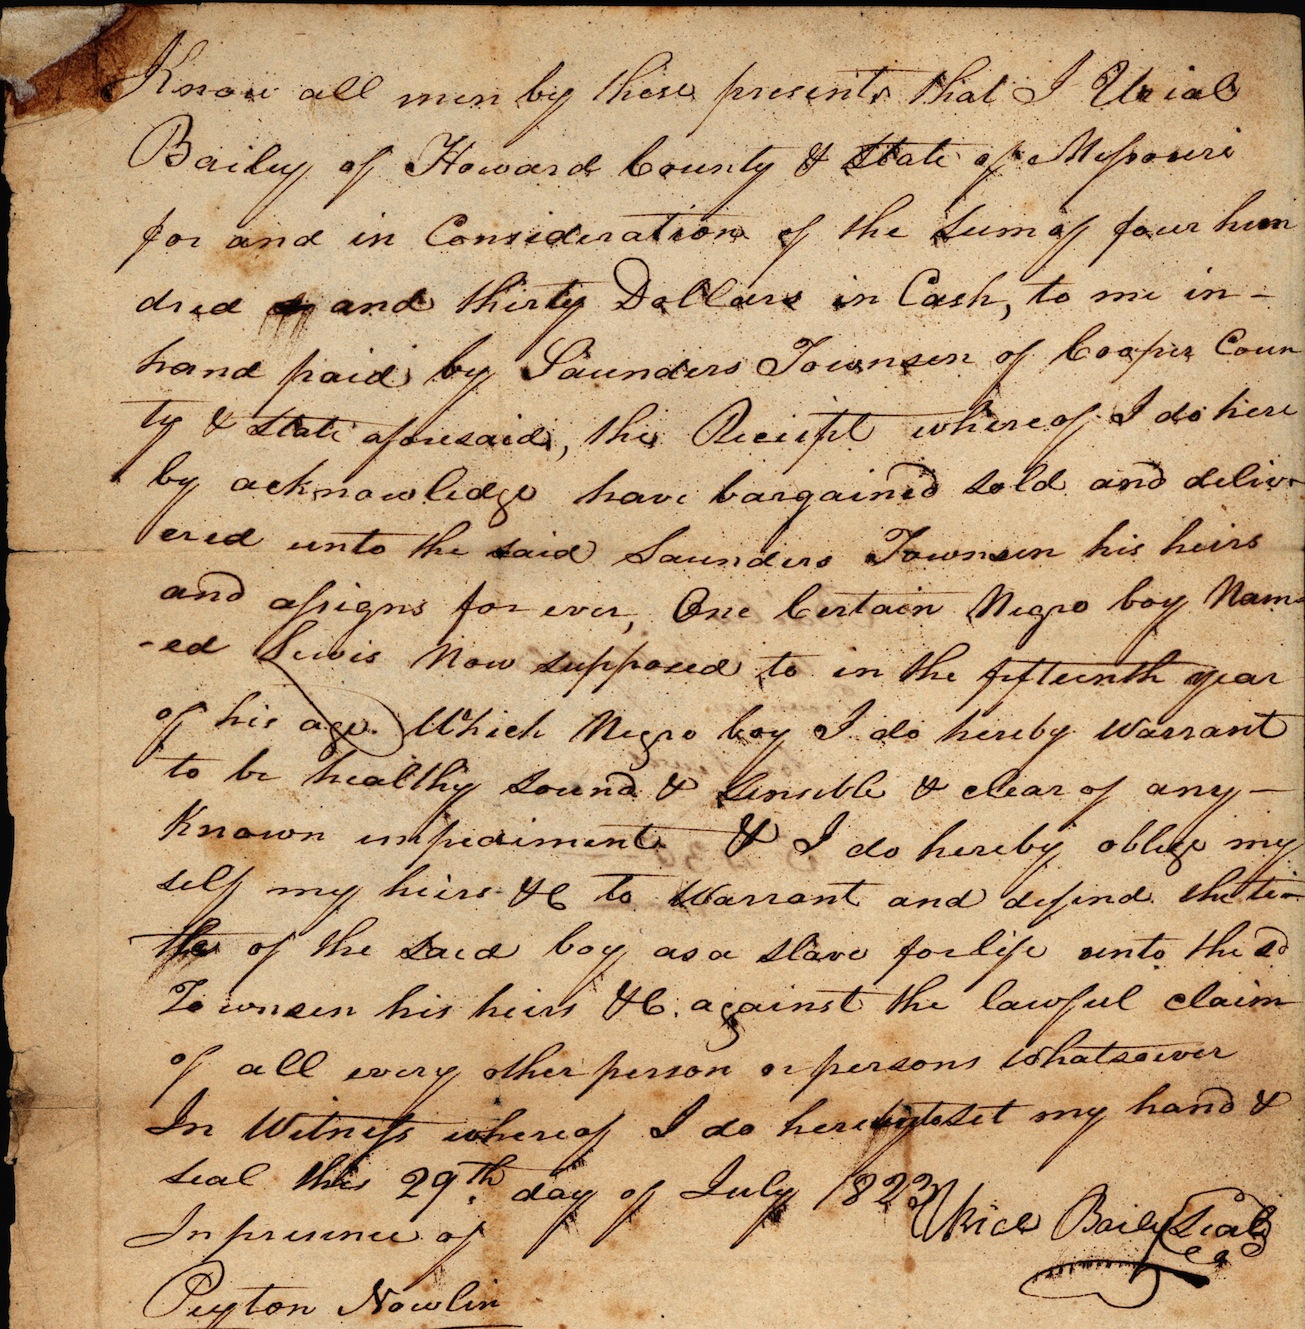 Know all men by these presents that I Urial
Bailey of Howard County & State of Missouri
for and in Consideration of the Sum of four hun
dred and thirty Dollars in Cash, to me in-
hand paid by Saunders Townsen of Cooper Coun
ty & State aforesaid, the Receipt whereof I do here
by acknowledge have bargained sold and deliv-
ered unto the said Saunders Townsen his heirs
and assigns for ever, One Certain Negro boy Nam-
-ed Lewis Now supposed to in the fifteenth year
of his age. Which Negro boy I do hereby Warrant
to be healthy sound & sensible & clear of any-
Known impediment & I do hereby oblige my
self my heirs &C to Warrant and defend the ti-
tle of the said boy as a slave for life unto the sd
Townsen his heirs &C. against the lawful claim
of all every other person or persons whatsoever
In Witness whereof I do hereunto set my hand &
seal this 29th day of July 1823
Urial Baily Seal
In presence of
Peyton Nowlin